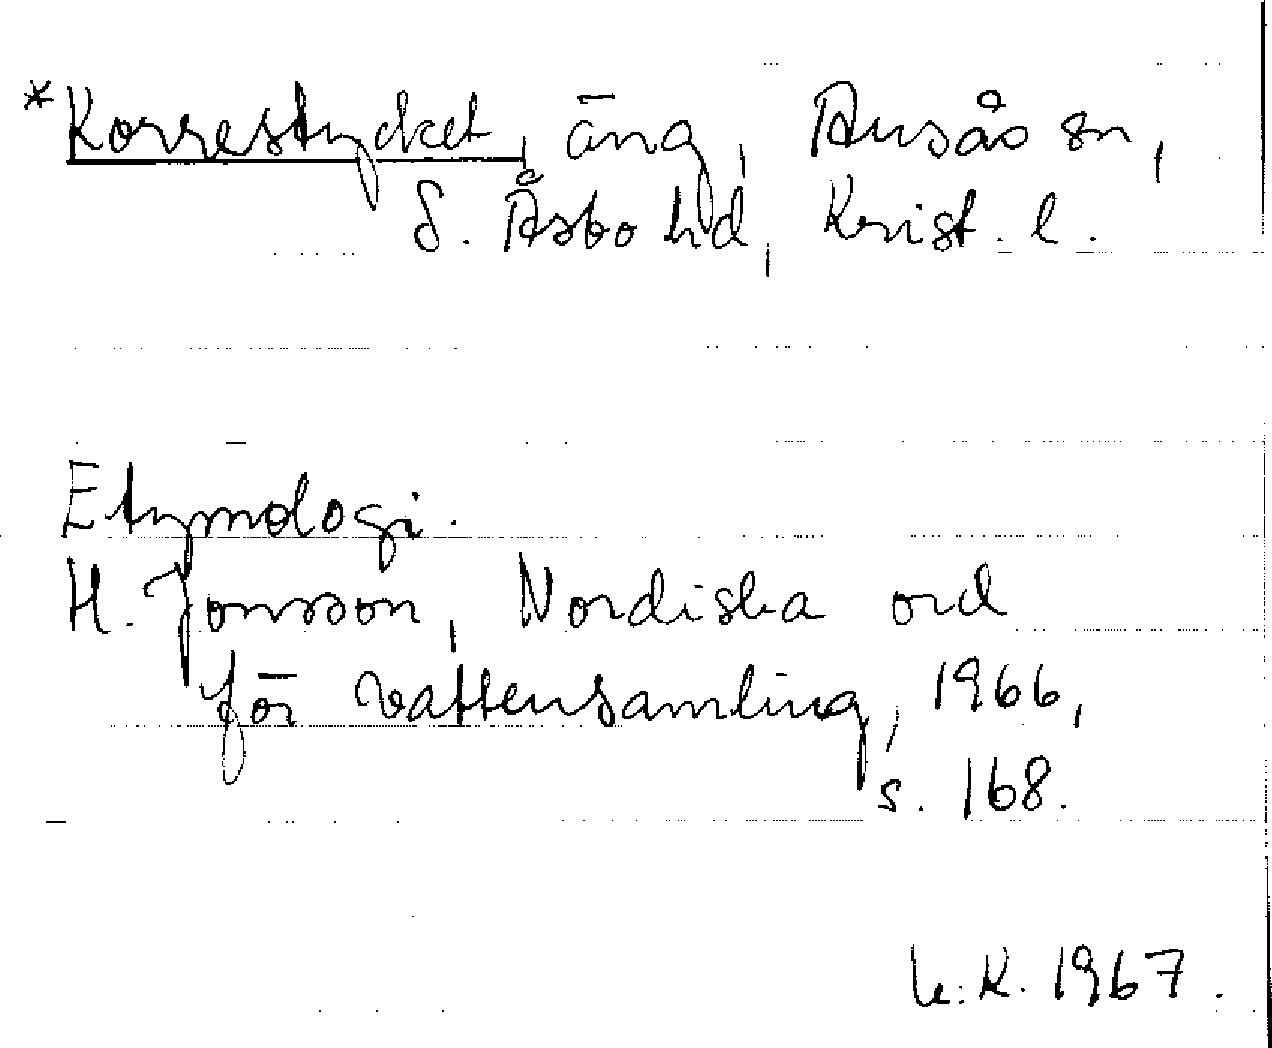 *Korrestycket, äng, Ausås sn,
S. Åsbo hd, Krist. l.
Etymologi.
H. Jonsson, Nordiska ord
för vattensamling, 1966,
s. 168.
K. 1967.